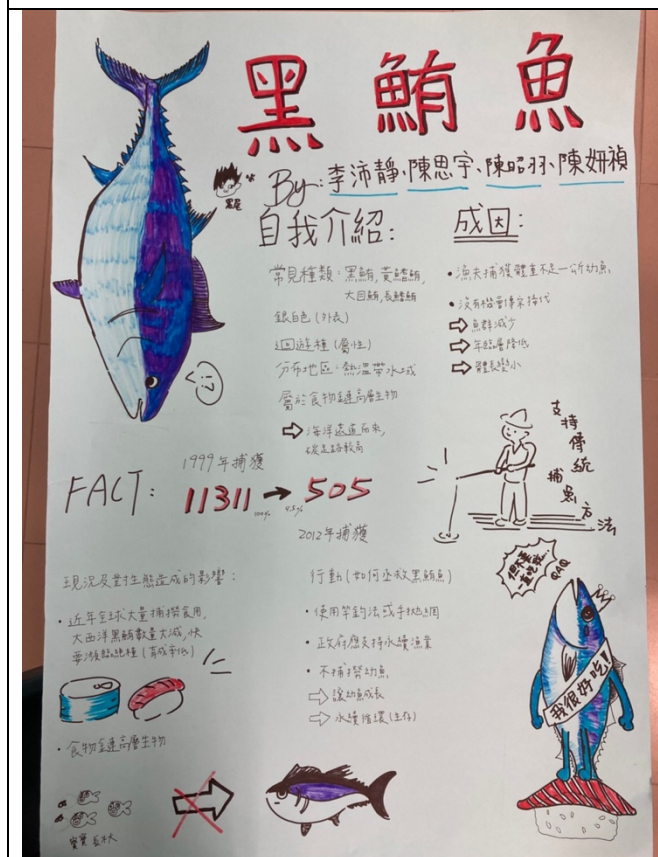 黑鮪魚
By: 李沛靜、陳思宇、陳昭羽、陳妍禎
自我介紹:
常見種類:黑鮪,黃鰭鮪,
大目鮪,長鰭鮪
銀白色(外表)
迴遊種(屬性)
分布地區:熱溫帶水域
屬於食物鏈高層生物
⇨ 海洋遠道而來,
碳足跡較高
成因:
• 漁夫捕獲體重不足一公斤幼魚
• 沒有足量傳宗接代
⇨ 魚群減少
⇨ 年齡層降低
⇨ 體長變小
支持傳統捕魚方法
FACT:
1999年捕獲
11311 → 505
100% 4.5%
2012年捕獲
現況及對生態造成的影響:
• 近年全球大量捕撈食用,
大西洋黑鮪數量大減,快
要瀕臨絕種(育成率低)
• 食物鏈高層生物
寶寶長不大
行動(如何拯救黑鮪魚)
• 使用竿釣法或手拋網
• 政府應支持永續漁業
• 不捕撈幼魚
⇨ 讓幼魚成長
⇨ 永續循環(生存)
但不要一直吃我
QAQ
我很好吃!